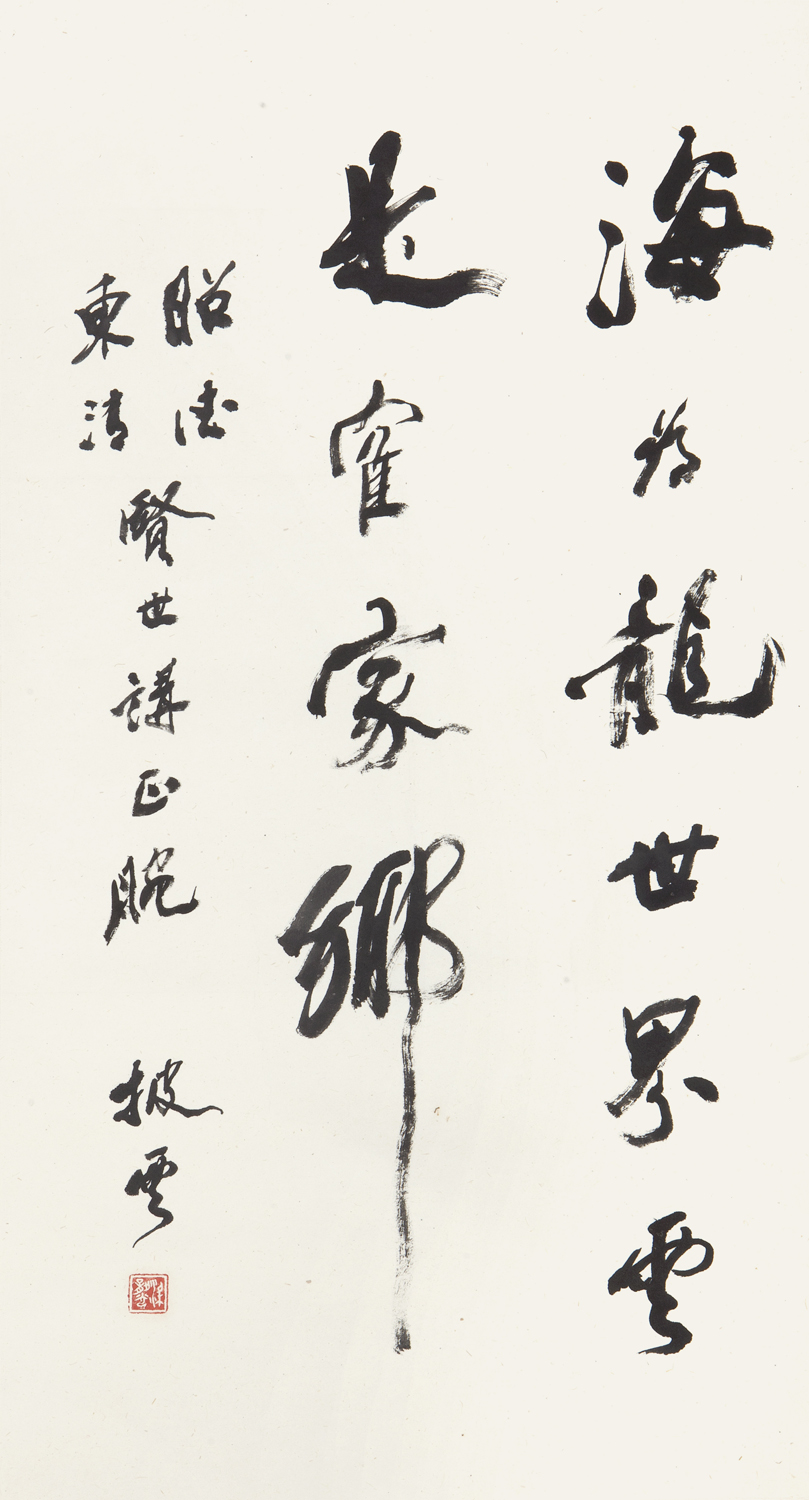 海為龍世界雲
是寉家鄉
昭德
東清
賢世講正腕
披雲